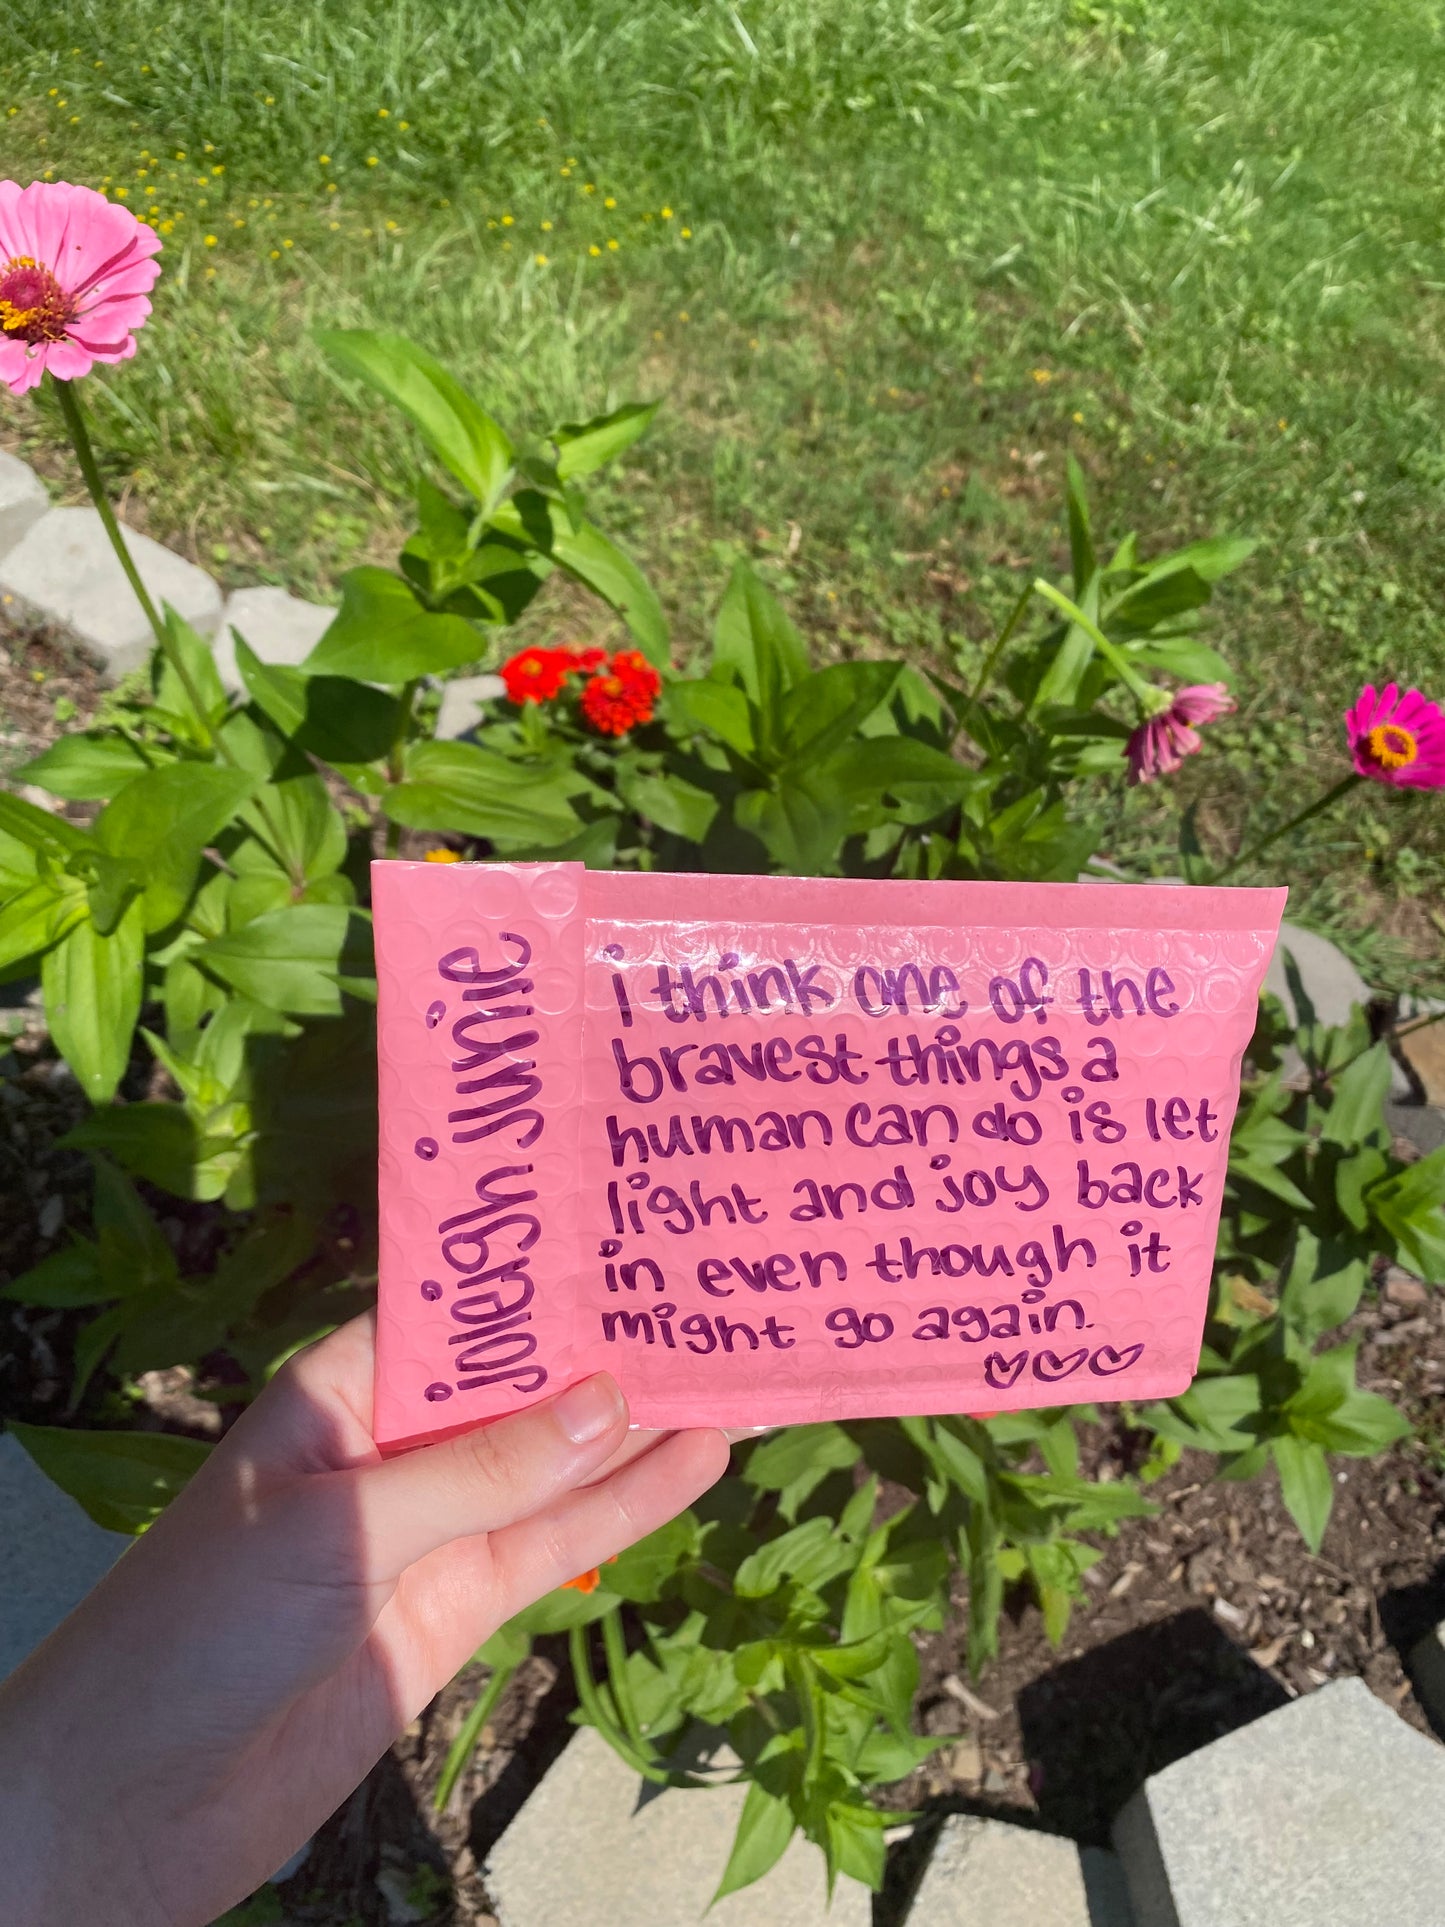 joleigh junie
i think one of the
bravest things a
human can do is let
light and joy back
in even though it
might go again.